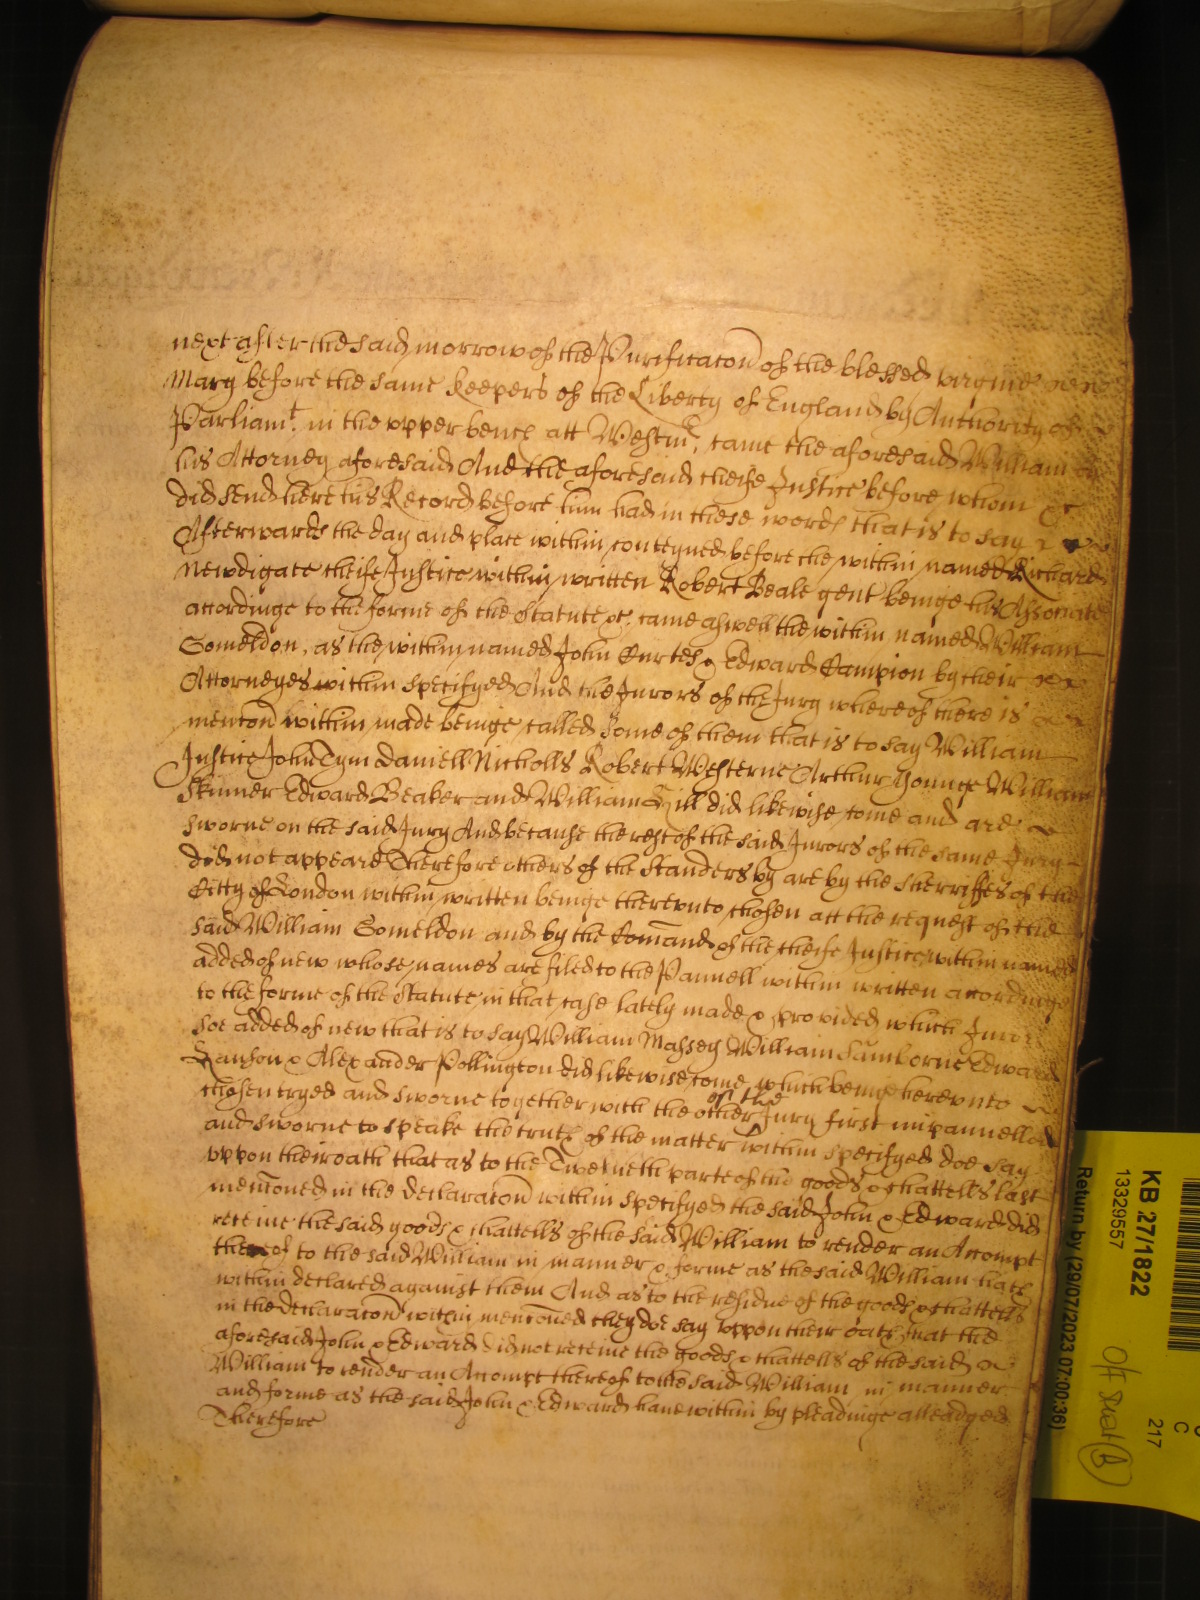 next after the said morrow of the Purificacon of the blessed virgine
Mary before the same Keepers of the Liberty of England by Authority of
Parliamt. in the vpper bench att Westmr. came the aforesaid William
his Attorney aforesaid And the aforesaid cheife Justice before whom &c
did send here his Record before him had in these words that is to say
Afterwards the day and place within conteyned before the within named Richard
Newdigate cheife Justice within written Robert Beale gent beinge his Associate
accordinge to the forme of the Statute &c. came aswell the within named William
Someldon, as the within named John Curtes & Edward Campion by their
Attorneyes within specifyed And the Jurors of the Jury whereof there is
mencon within made beinge called Some of them that is to say William
Justice John Tym Daniell Nicholls Robert Westerne Arthur Younge William
Skinner Edward Beaker and William Gill did likewise come and are
sworne on the said Jury And because the rest of the said Jurors of the same Jury
did not appeare Therefore others of the Standers by are by the Sherriffes of the
Citty of London within written beinge therevnto chosen att the request of the
said William Someldon and by the Comand of the cheife Justice within named
added of new whose names are filed to the Pannell within written accordinge
to the forme of the Statute in that case lately made & provided which Jurors
soe added of new that is to say William Massey William Samborne Edward
Ranson & Alexander Pollington did likewise come which beinge herevnto
chosen tryed and sworne together with the other of the Jury first impannelled
and sworne to speake the truth of the matter within specifyed doe say
vppon their oath that as to the Twelueth parte of the goods & chattells last
mencioned in the declaracon within specifyed the said John & Edward did
receiue the said goods & chattells of the said William to render an Accompt
thereof to the said William in manner & forme as the said William hath
within declared against them And as to the residue of the goods & chattells
in the declaracon within mencioned they doe say vppon their oath that the
aforesaid John & Edward did not receiue the goods & chattells of the said
William to render an Accompt thereof to the said William in manner
and forme as the said John & Edward haue within by pleadinge alleadged
Therefore
KB 27/1822
13329557
Return by (29/07/2023 07:00:36)
217
C
Off Site (B)